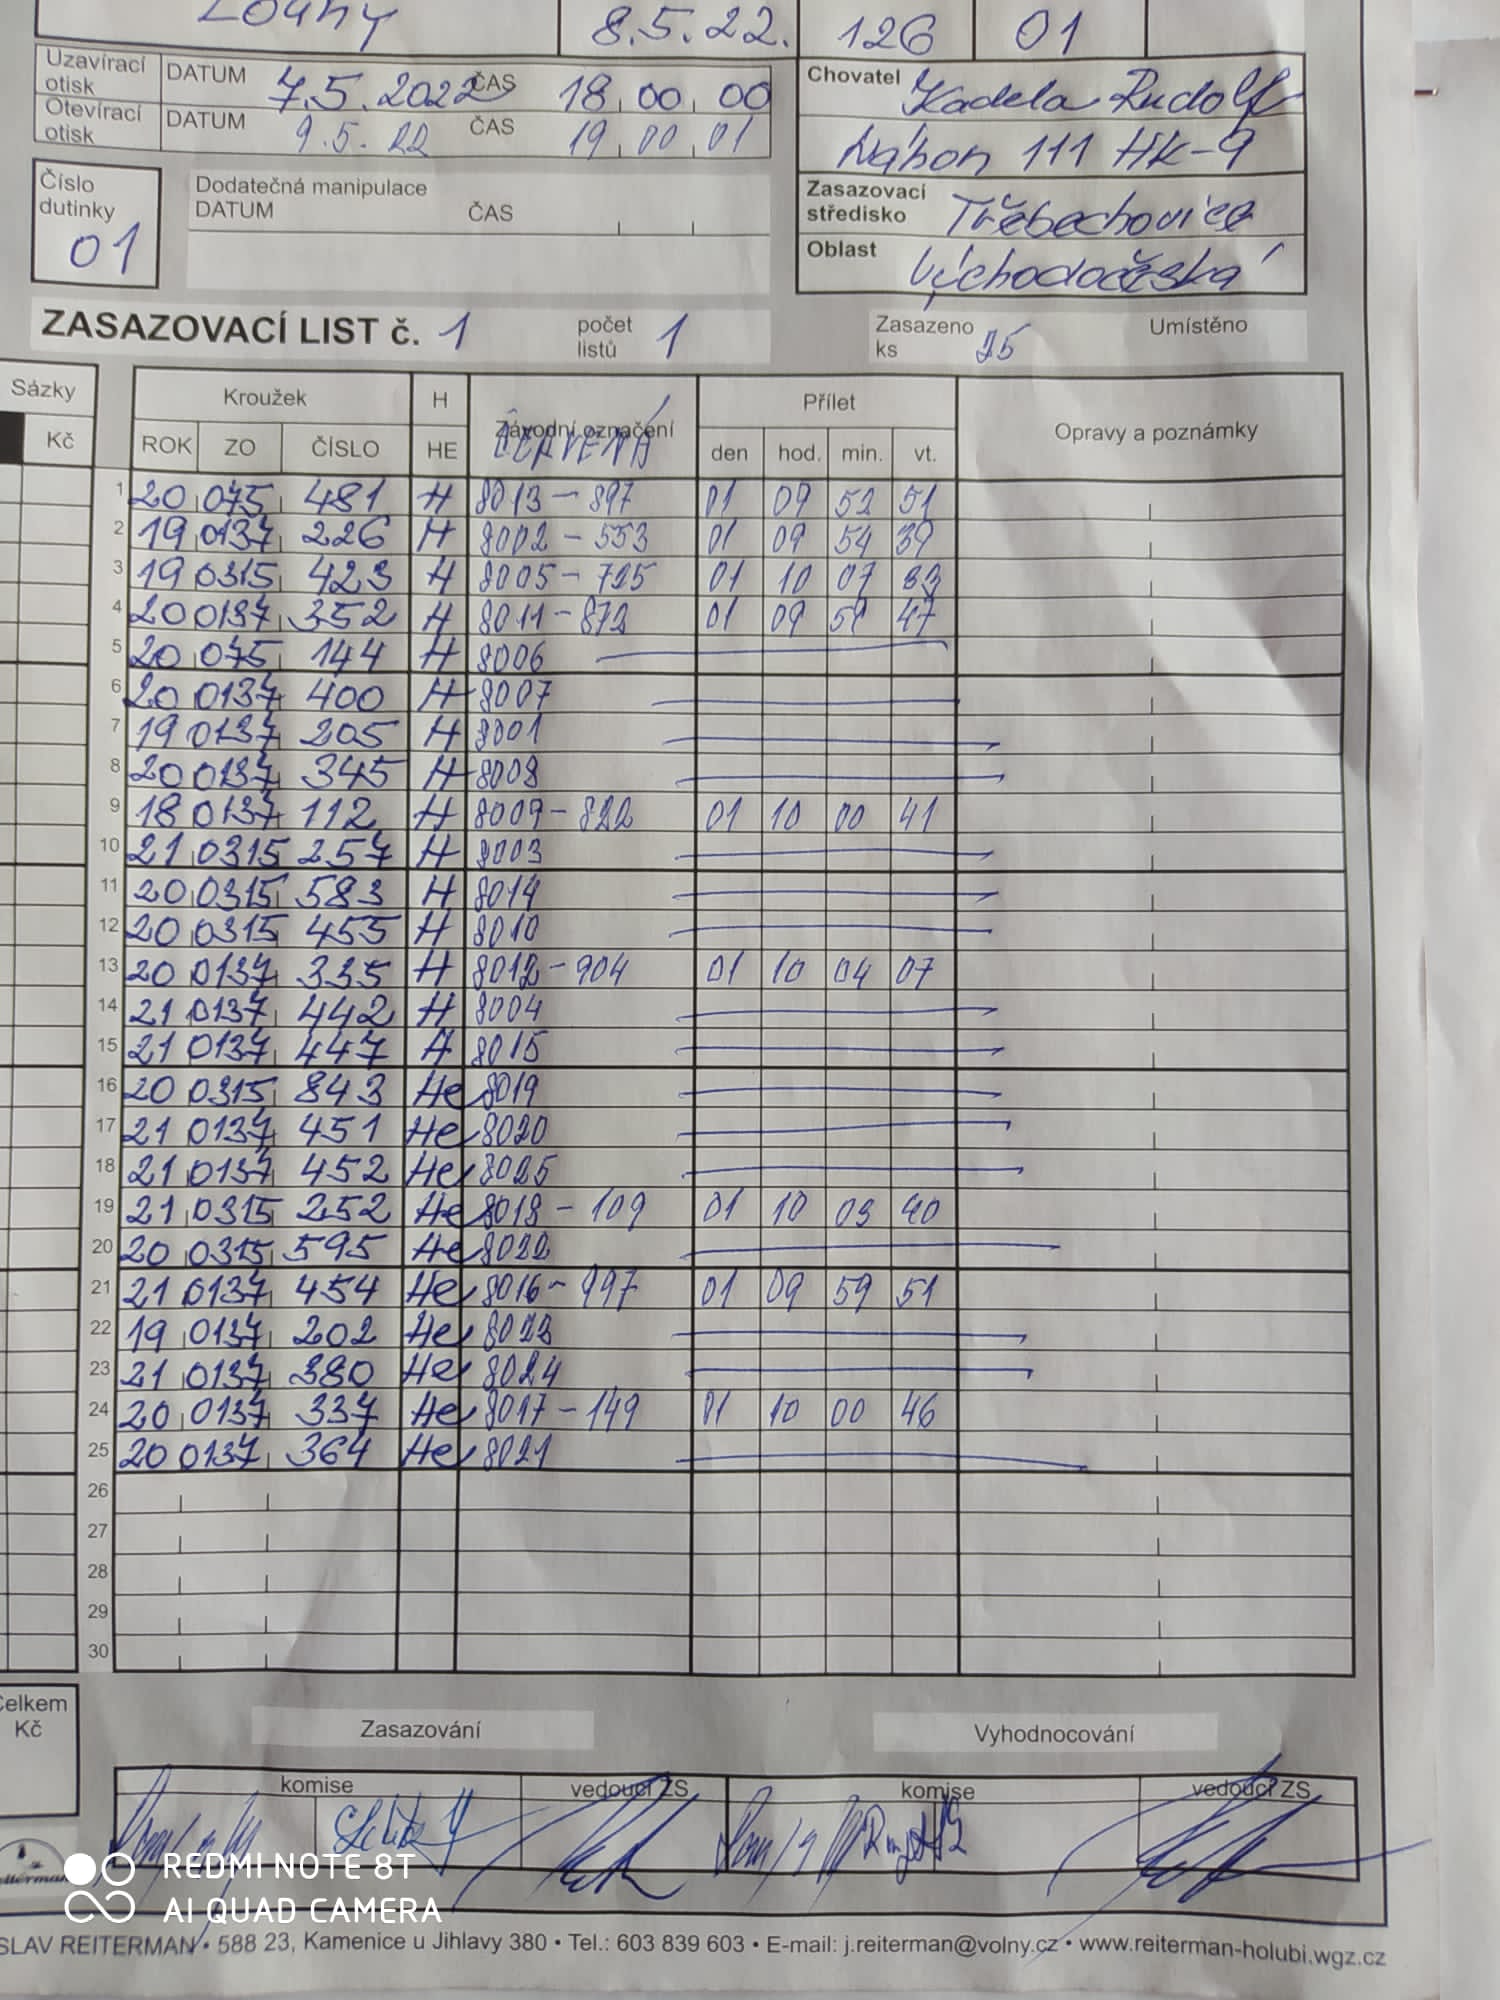 Louny 8.5.22. 126 01
Uzavírací otisk DATUM 7.5.2022 ČAS 18 00 00
Otevírací otisk DATUM 9.5.22 ČAS 19 00 01
Chovatel Kadela Rudolf
Náhon 111 HK-9
Číslo dutinky 01
Dodatečná manipulace
DATUM ČAS
Zasazovací středisko Třebechovice
Oblast Východočeská
ZASAZOVACÍ LIST č. 1 počet listů 1 Zasazeno ks 25 Umístěno
Sázky Kroužek H Závodní označení Přílet Opravy a poznámky
Kč ROK ZO ČÍSLO HE ČERVENÁ den hod. min. vt.
1 20 075 481 H 8013 - 897 01 09 52 51
2 19 0137 226 H 8002 - 553 01 09 54 39
3 19 0315 423 H 8005 - 725 01 10 07 33
4 20 0137 352 H 8011 - 872 01 09 59 47
5 20 075 144 H 8006
6 20 0137 400 H 8007
7 19 0137 205 H 8001
8 20 0137 345 H 8008
9 18 0137 112 H 8009 - 822 01 10 00 41
10 21 0315 257 H 8003
11 20 0315 583 H 8014
12 20 0315 455 H 8010
13 20 0137 335 H 8012 - 904 01 10 04 07
14 21 0137 442 H 8004
15 21 0137 447 H 8015
16 20 0315 843 He 8019
17 21 0137 451 He 8020
18 21 0137 452 He 8025
19 21 0315 252 He 8018 - 109 01 10 03 40
20 20 0315 595 He 8022
21 21 0137 454 He 8016 - 997 01 09 59 51
22 19 0137 202 He 8023
23 21 0137 380 He 8024
24 20 0137 337 He 8017 - 149 01 10 00 46
25 20 0137 364 He 8021
26
27
28
29
30
Celkem Kč
Zasazování Vyhodnocování
komise vedoucí ZS komise vedoucí ZS
REDMI NOTE 8T
AI QUAD CAMERA
SLAV REITERMAN • 588 23, Kamenice u Jihlavy 380 • Tel.: 603 839 603 • E-mail: j.reiterman@volny.cz • www.reiterman-holubi.wgz.cz